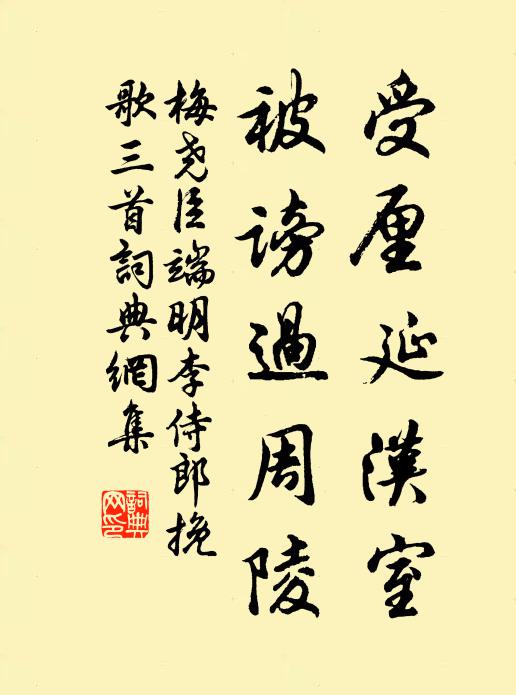 受厘延漢室
被謗過周陵
梅尧臣端明李侍郎挽
歌三首詞典網集
詞典
网印